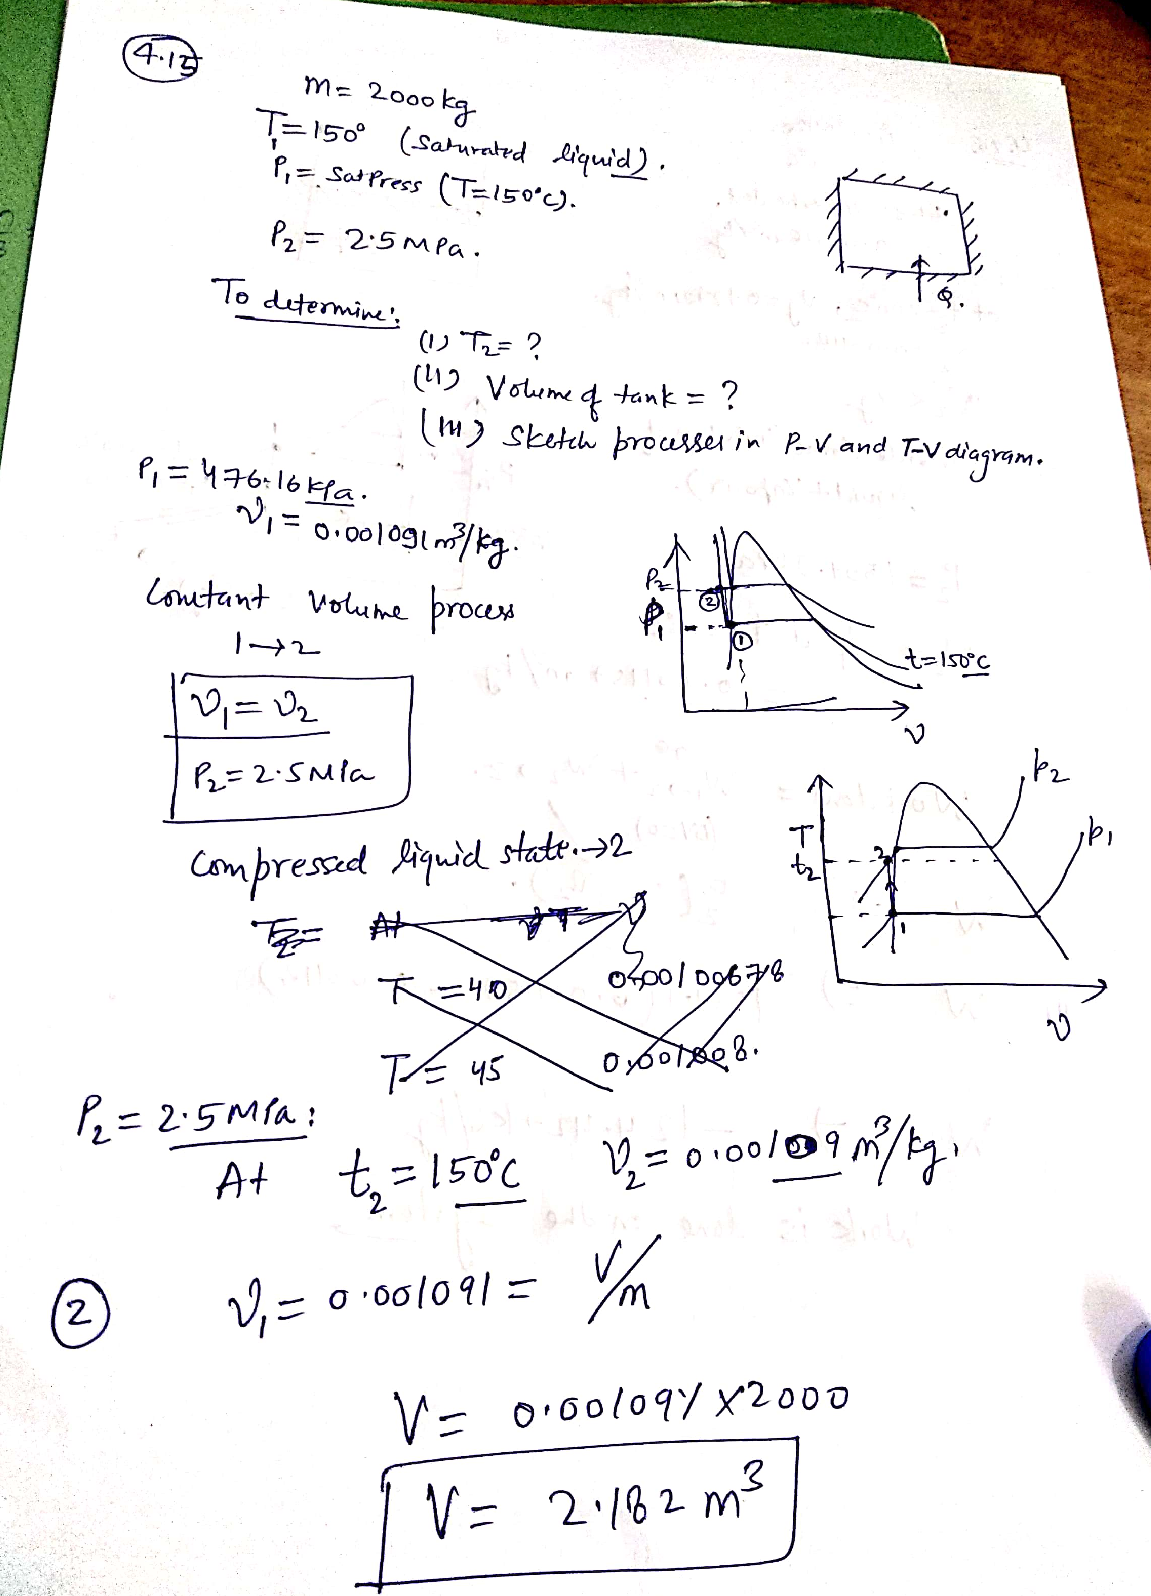 4.15
m = 2000 kg
T₁ = 150° (Saturated liquid).
P₁ = Sat Press (T=150°C).
P₂ = 2.5 MPa.
Q.
To determine:
(i) T₂ = ?
(ii) Volume of tank = ?
(iii) Sketch processes in P-V and T-V diagram.
P₁ = 476.16 kPa.
v₁ = 0.001091 m³/kg.
Constant volume process
1→2
v₁ = v₂
P₂ = 2.5 MPa
P₂
P₁
②
①
t=150°C
v
Compressed liquid state.→2
T
t₂
2
1
p₂
p₁
v
T₂ =
T = 40
T = 45
P₂ = 2.5 MPa:
At t₂ = 150°C v₂ = 0.00109 m³/kg.
② v₁ = 0.001091 = V/m
V = 0.001091 x 2000
V = 2.182 m³